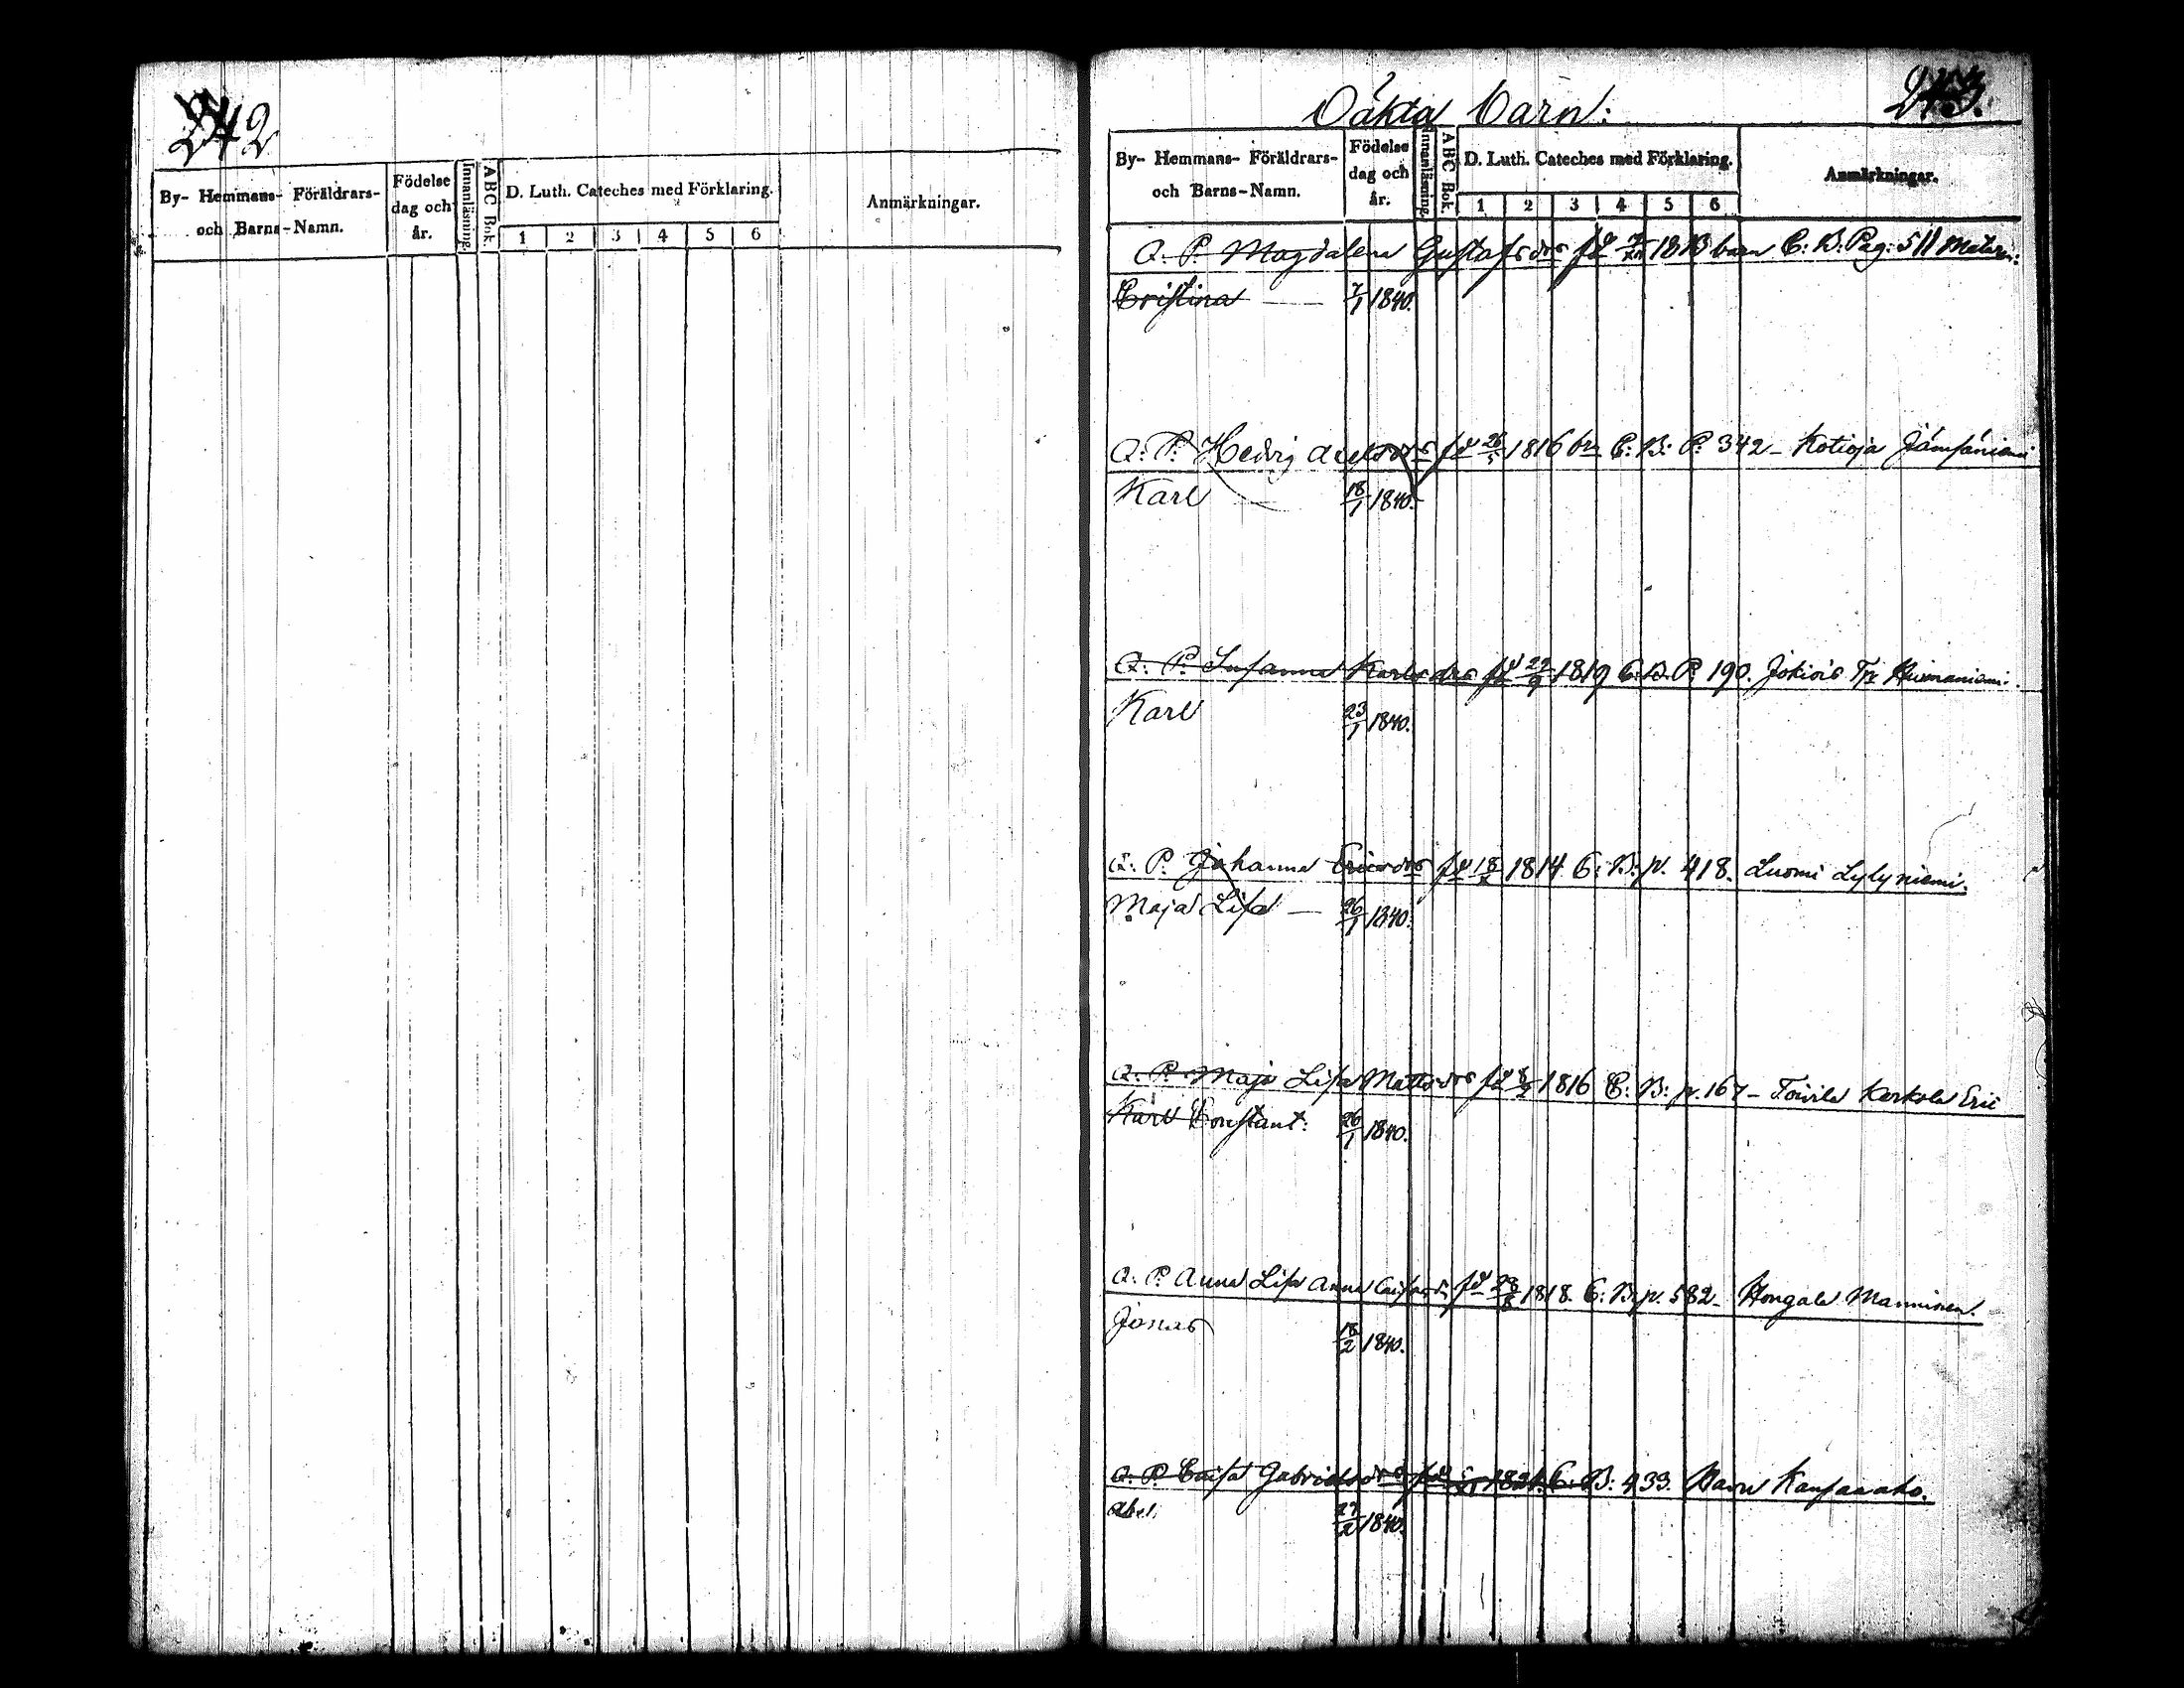 242
By- Hemmans- Föräldrars- och Barns-Namn.
Födelse dag och år.
Innanläsning.
ABC Bok.
D. Luth. Cateches med Förklaring.
1 2 3 4 5 6
Anmärkningar.
243.
Oäkta Barn:
By- Hemmans- Föräldrars- och Barns-Namn.
Födelse dag och år.
Innanläsning.
ABC Bok.
D. Luth. Cateches med Förklaring.
1 2 3 4 5 6
Anmärkningar.
Q. P. Magdalena Gustafsdr fd 1818 barn C: B: Pag: 511
Cristina 7/1 1840.
Q. P. Hedvig Axelsdr fd 26/5 1816 C: B: P. 342 - Kotioja Jämsäniemi
Karl 18/1 1840.
Q. P. Susanna Karlsdr fd 29/9 1819 C: B. P. 190. Jokiois Tp
Karl 23/1 1840.
Q. P. Johanna Ericsdr fd 1814 C: B: p. 418. Luomi Lylyniemi.
Maja Lisa 26/1 1840.
Q. P. Maja Lisa Mattsdr fd 1816 C: B: p. 167 - Kerkola Eric
Karl Constant: 26/1 1840.
Q. P. Anna Lisa Anna fd 1818 C: B. p. 582 - Hongala Manninen.
Jonas 18/2 1840.
Q. P. Caisa Gabrielsdr fd 1821. C: B: 433.
Abel. 27/2 1840.